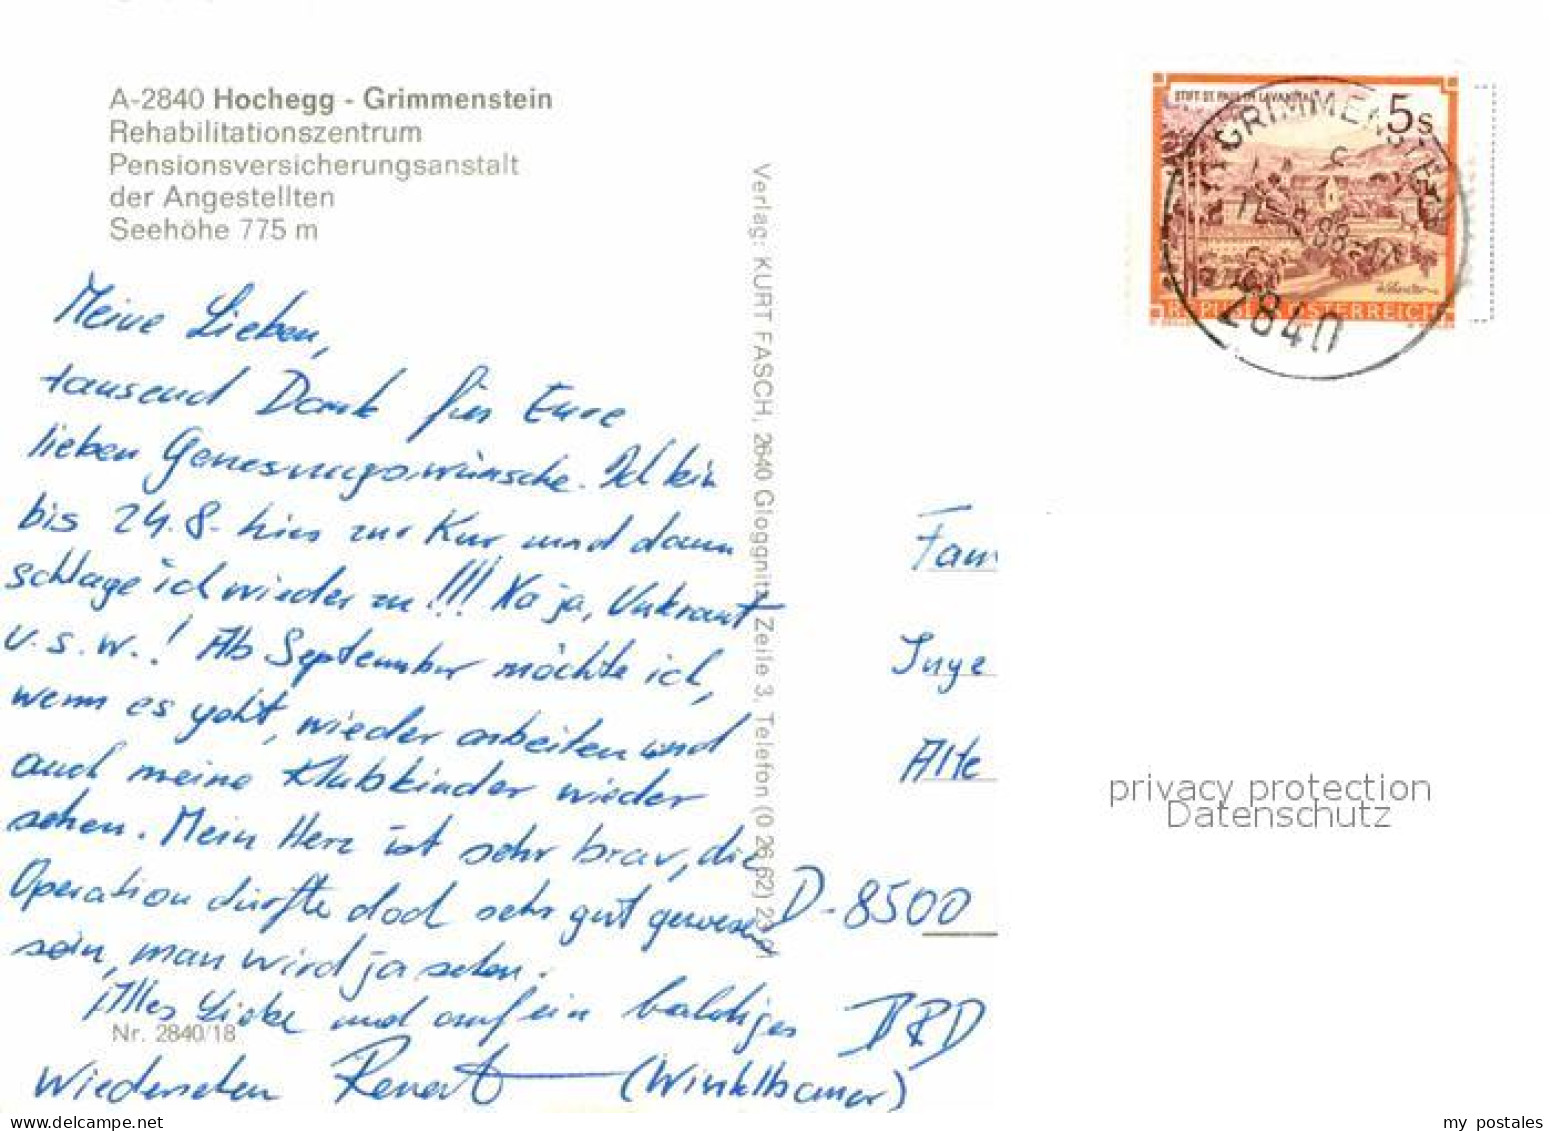 A-2840 Hochegg - Grimmenstein
Rehabilitationszentrum
Pensionsversicherungsanstalt
der Angestellten
Seehöhe 775 m
Meine Lieben,
tausend Dank für Eure
lieben Genesungswünsche. Ich bin
bis 24.8. hier zur Kur und dann
schlage ich wieder zu!!! Na ja, Unkraut
u.s.w.! Ab September möchte ich,
wenn es geht, wieder arbeiten und
auch meine Klubkinder wieder
sehen. Mein Herz ist sehr brav, die
Operation dürfte doch sehr gut gewesen
sein, man wird ja sehen.
Alles Liebe und auf ein baldiges
Wiedersehen (Winklbauer)
Nr. 2840/18
Verlag: KURT FASCH, 2640 Gloggnitz, Zeile 3, Telefon (0 26 62) 23
STIFT ST. PAUL IM LAVANTTAL
5 S
REPUBLIK ÖSTERREICH
GRIMMENSTEIN
c
88-12
2840
Fam
Inge
Alte
D-8500
BRD
privacy protection
Datenschutz
my postales